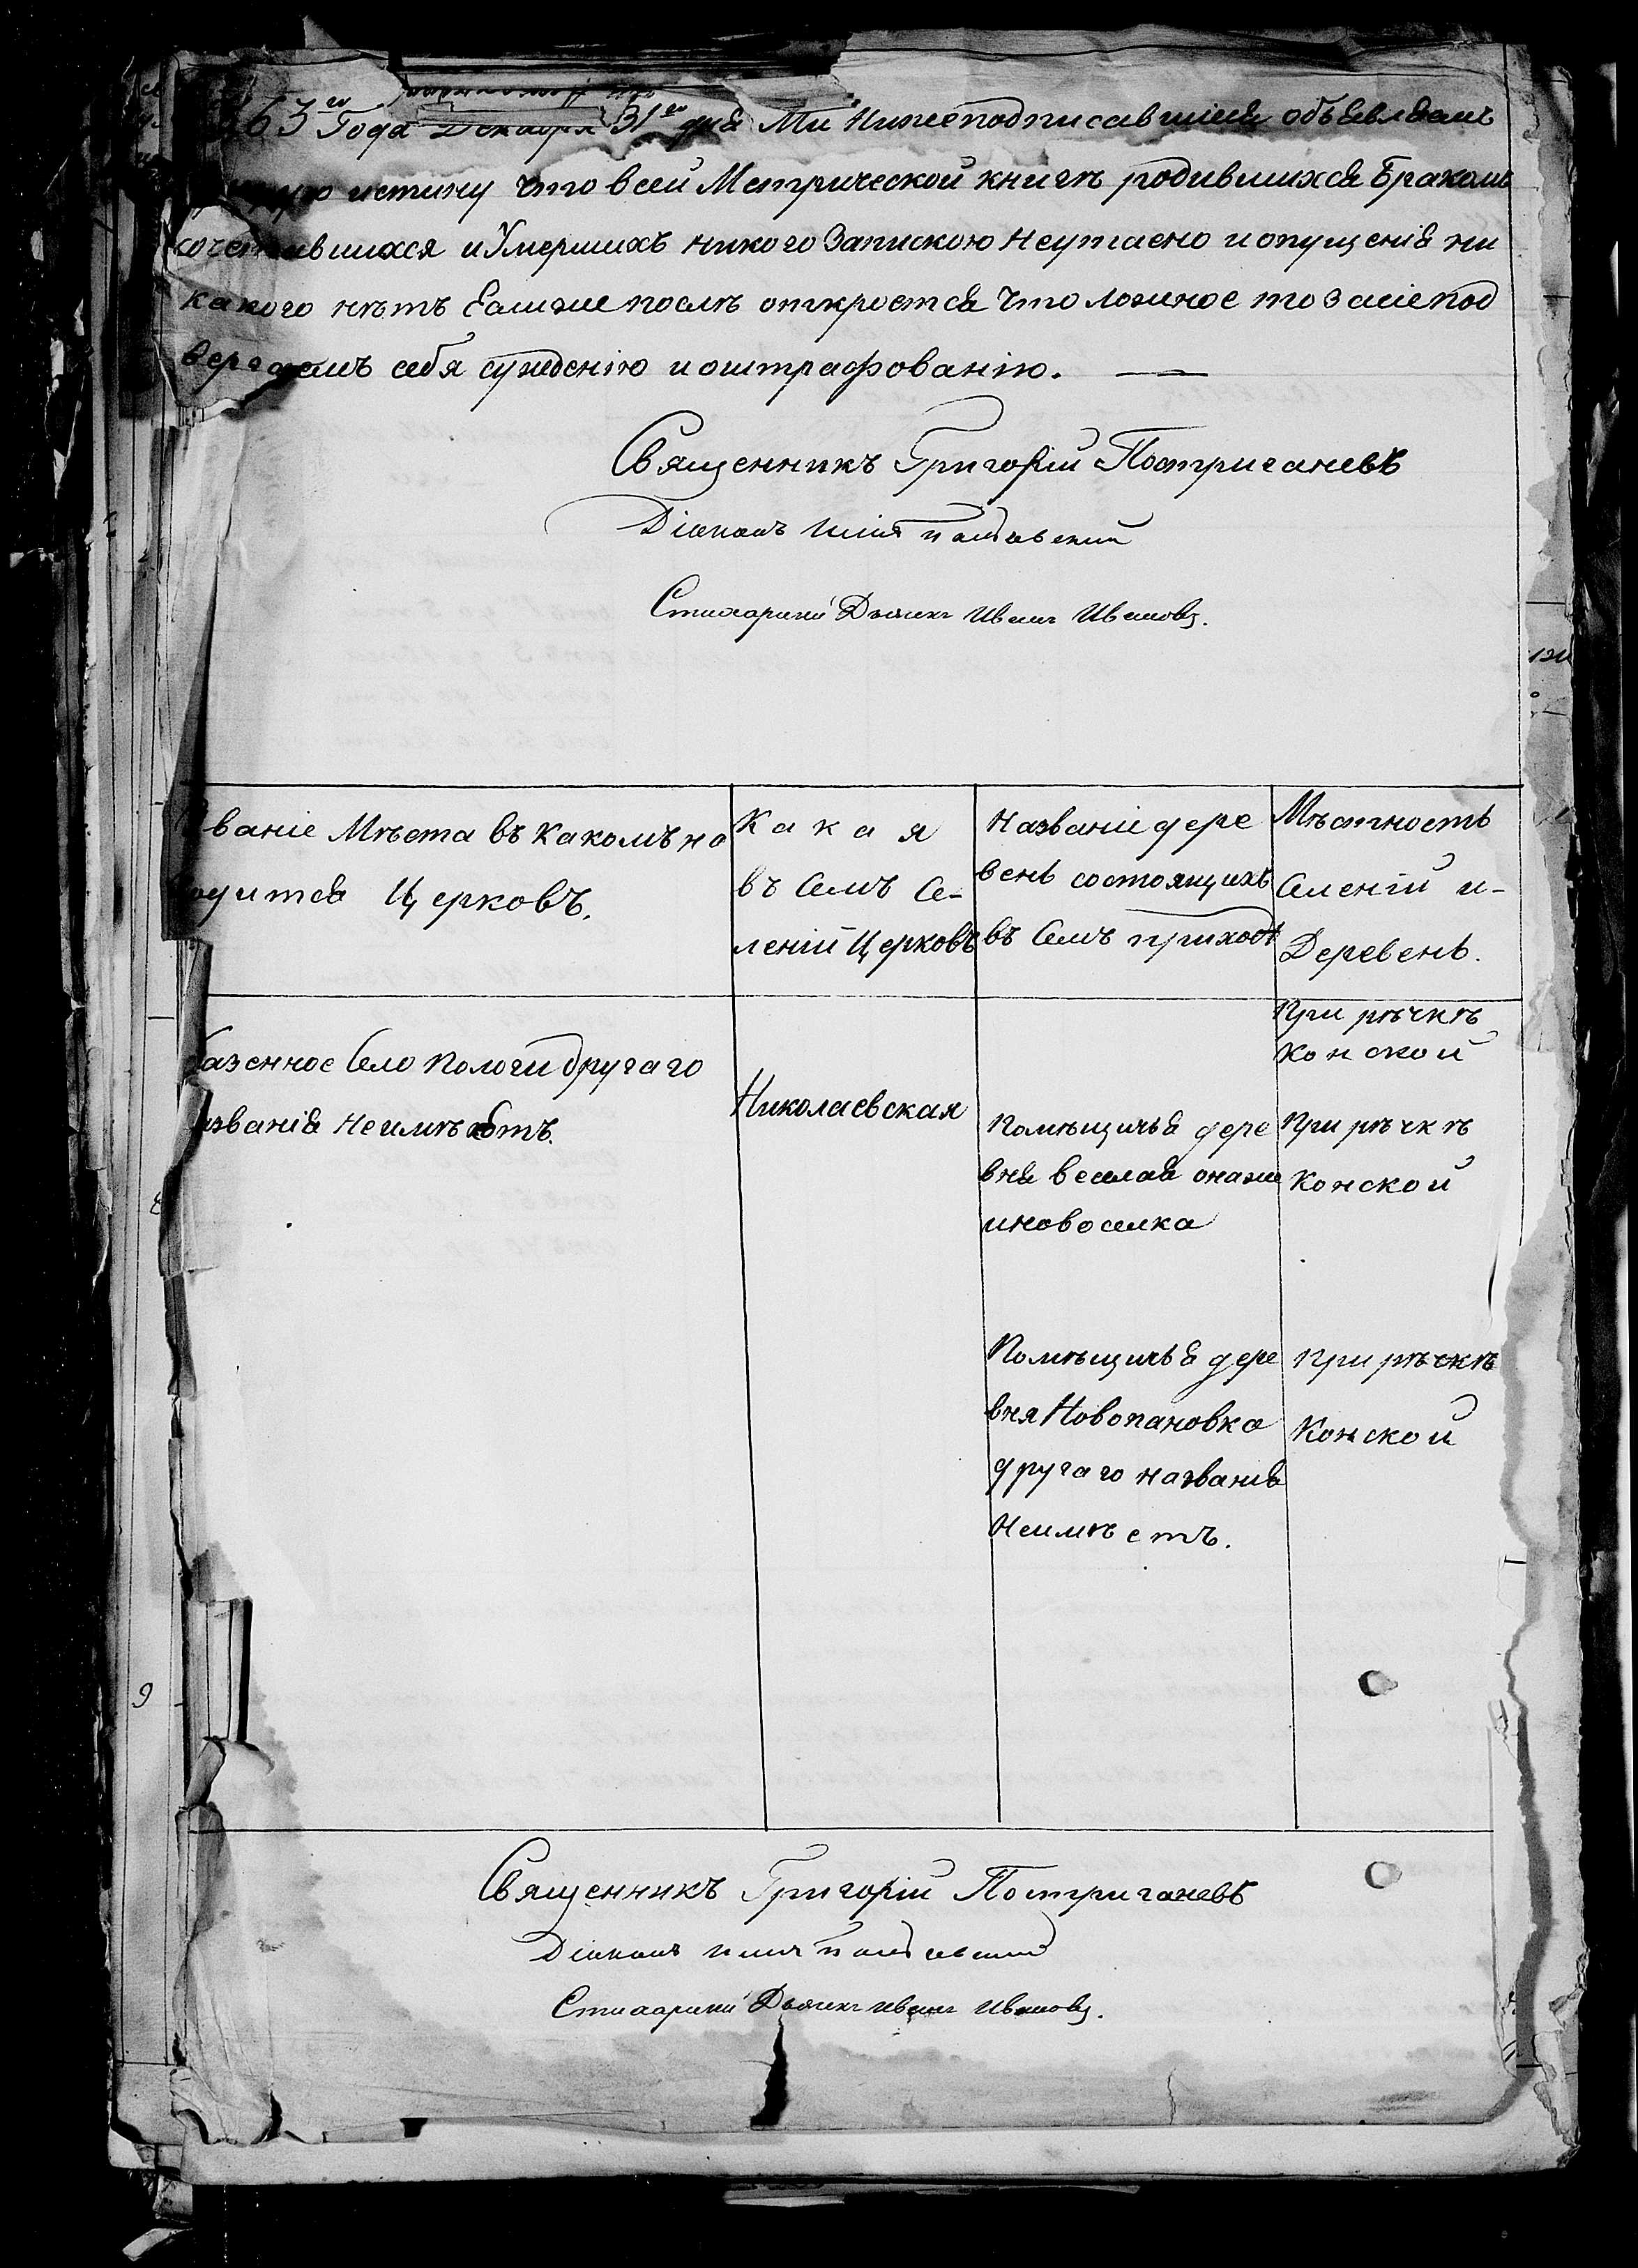 63го Года Декабря 31го дня Мы Нижеподписавшіися объявляемъ
истину что всей Метрической книгѣ родившихся Бракомъ
сочетавшихся и Умершихъ никого Запискою Неутаено и опущенія ни
какого нѣтъ Еслиже послѣ откроется Что ложное то засіе под
вергаемъ себя сужденію и оштрафованію.
Священникъ Григорій Постригачевъ
Діаконъ Илія
Стихарный Дьячекъ Иванъ Ивановъ.
званіе Мѣста въ Какомъ на
ходится Церковъ.
Какая
въ Семъ Се-
леніи Церковъ
Названіе дере
вень состоящихъ
въ Семъ приходѣ
Мѣстность
Селеній и-
Деревень.
Казенное Село Пологи другаго
названія Неимѣетъ.
Николаевская
При рѣчкѣ
Конской
Помѣщичья дере
вня Веселая онаже
иновоселка
При рѣчкѣ
Конской
Помѣщичья дере
вня Новопановка
другаго названія
Неимѣетъ.
При рѣчкѣ
Конской
Священникъ Григорій Постригачевъ
Діаконъ Илія
Стихарный Дьячекъ Иванъ Ивановъ.
9